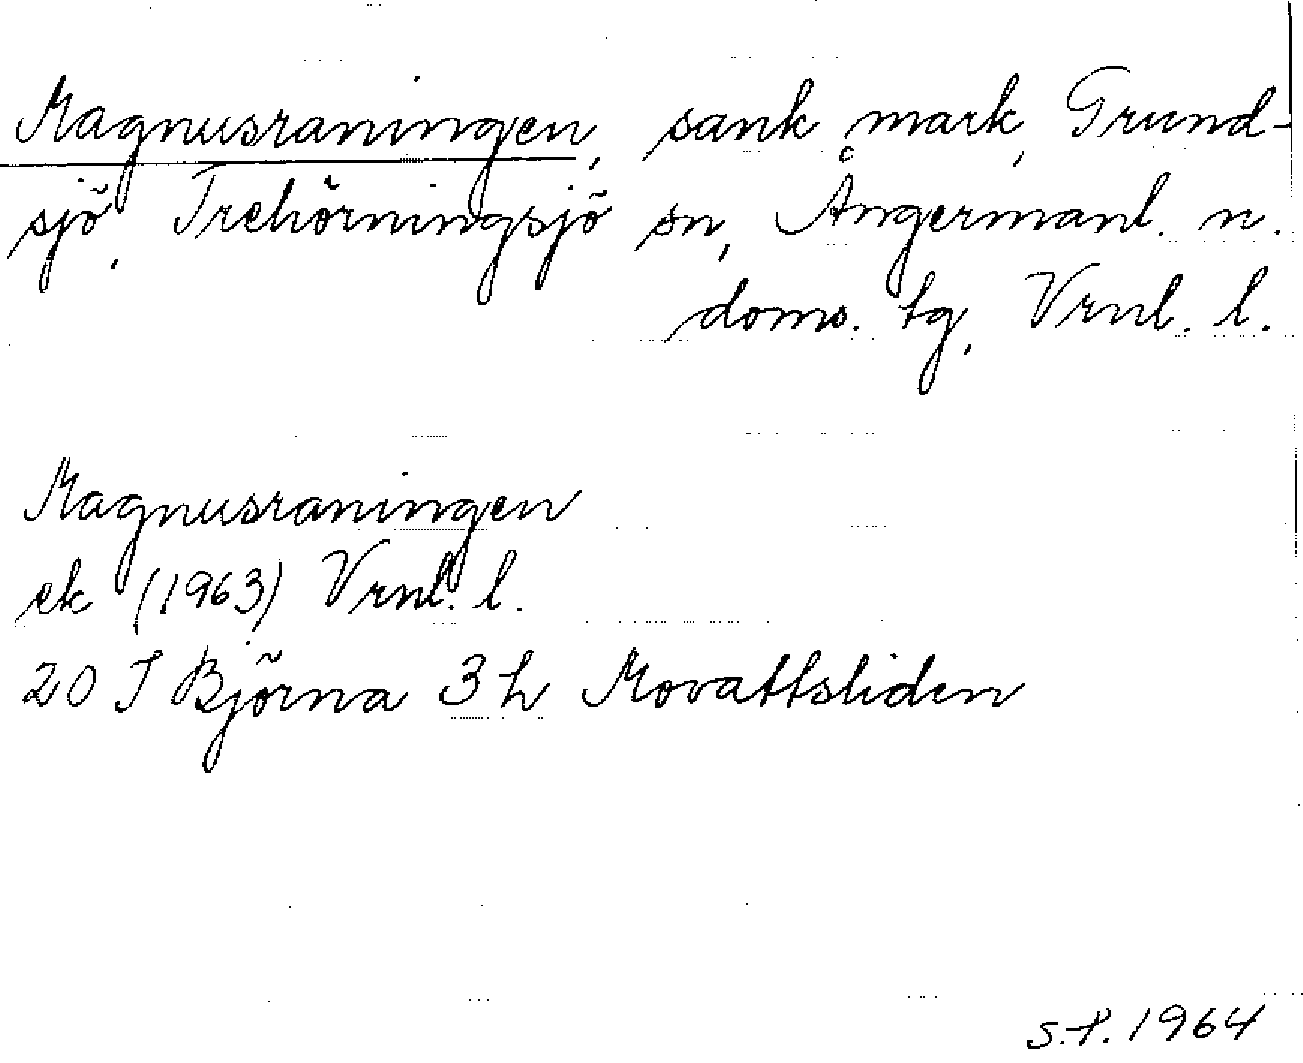 Magnusraningen, sank mark, Grund-
sjö, Trehörningsjö sn, Ångermanl. n.
doms. tg, Vrnl. l.
Magnusraningen
ek (1963) Vrnl. l.
20 I Björna 3 h Movattsliden
S.P. 1964